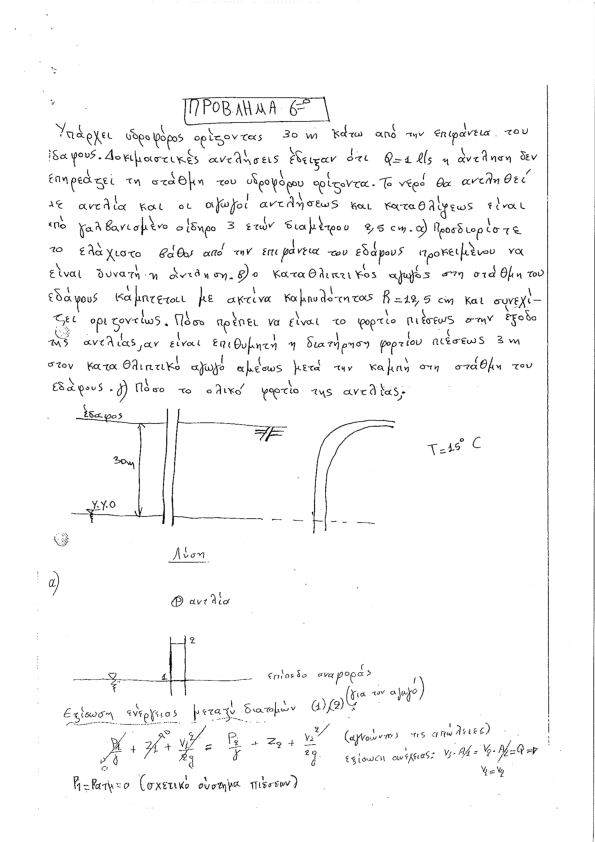 ΠΡΟΒΛΗΜΑ 6=º
Υπάρχει υδροφόρος ορίζοντας 30 m κάτω από την επιφάνεια του
εδάφους. Δοκιμαστικές αντλήσεις έδειξαν ότι Q=1 l/s η άντληση δεν
επηρεάζει τη στάθμη του υδροφόρου ορίζοντα. Το νερό θα αντληθεί
με αντλία και οι αγωγοί αντλήσεως και καταθλίψεως είναι
από γαλβανισμένο σίδηρο 3 ετών διαμέτρου 2,5 cm. α) Προσδιορίστε
το ελάχιστο βάθος από την επιφάνεια του εδάφους προκειμένου να
είναι δυνατή η άντληση. β) ο καταθλιπτικός αγωγός στη στάθμη του
εδάφους κάμπτεται με ακτίνα καμπυλότητας R=12,5 cm και συνεχί-
ζει οριζοντίως. Πόσο πρέπει να είναι το φορτίο πιέσεως στην έξοδο
της αντλίας, αν είναι επιθυμητή η διατήρηση φορτίου πιέσεως 3 m
στον καταθλιπτικό αγωγό αμέσως μετά την καμπή στη στάθμη του
εδάφους. γ) Πόσο το ολικό φορτίο της αντλίας;
έδαφος
T=15° C
30m
Υ.Υ.Ο
Λύση
α)
P αντλία
2
1
επίπεδο αναφοράς
Εξίσωση ενέργειας μεταξύ διατομών (1),(2) (για τον αγωγό)
P1/γ + Z1 + V1²/2g = P2/γ + Z2 + V2²/2g (αγνοώντας τις απώλειες)
εξίσωση συνέχειας: V1·A1 = V2·A2 = Q ⇒
V1=V2
P1=Pατμ=0 (σχετικό σύστημα πιέσεων)